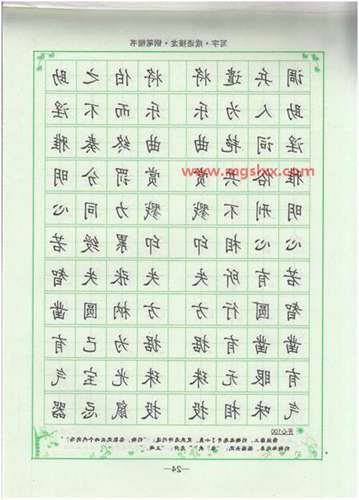 写字·成语接龙·钢笔楷书
调兵遣将 将伯之助
助人为乐 乐而不淫
淫词艳曲 曲终奏雅
雅俗共赏 赏罚分明
www.mgshxx.com
明刑不戮 戮力同心
心心相印 印累绶若
若有所失 失张失智
智圆行方 方枘圆凿
凿凿有据 据为己有
有眼无珠 珠光宝气
气味相投 投鼠忌器
开心100
—24—